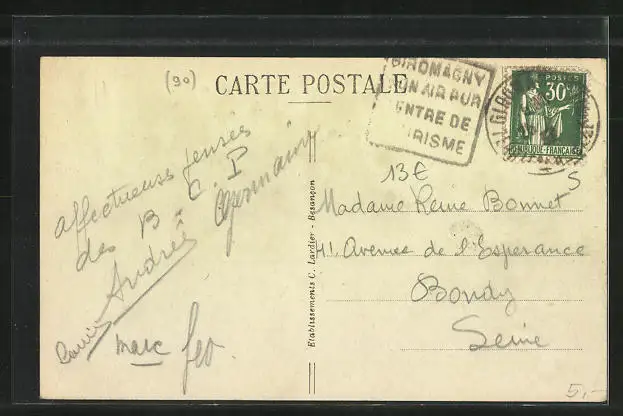 (90)
CARTE POSTALE
GIROMAGNY
SON AIR PUR
CENTRE DE
TOURISME
POSTES
30
REPUBLIQUE FRANÇAISE
affectueuses pensées
des B. C. P
Germaine
Andrée
Louis
Marc Géo.
Etablissements C. Lardier - Besançon
13€
S
Madame Reine Bonnet
41, Avenue de l'Esperance
Bondy
Seine
5,-